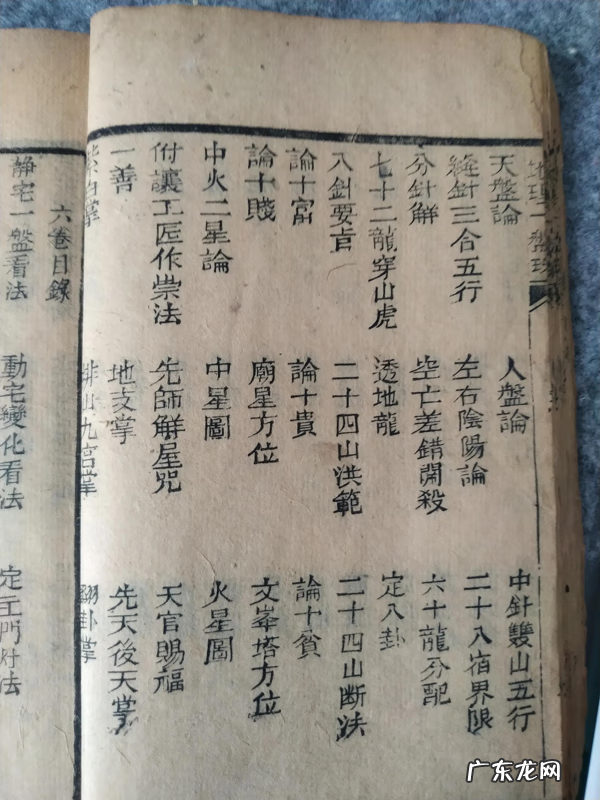 地理一盤珠
天盤論 人盤論 中針雙山五行
縫針三合五行 左右陰陽論 二十八宿界限
分針解 空亡差錯關殺 六十龍分配
七十二龍穿山虎 透地龍 定八卦
八針要旨 二十四山洪範 二十四山断法
論十富 論十貴 論十貧
論十賤 廟星方位 文峯塔方位
中火二星論 中星圖 火星圖
付讓工匠作祟法 先師解星咒 天官賜福
一善 地支掌 先天後天掌
紫白掌 排山九宮掌 翻卦掌
六卷目錄
静宅一盤看法 動宅變化看法 定主門灶法
广东龙网